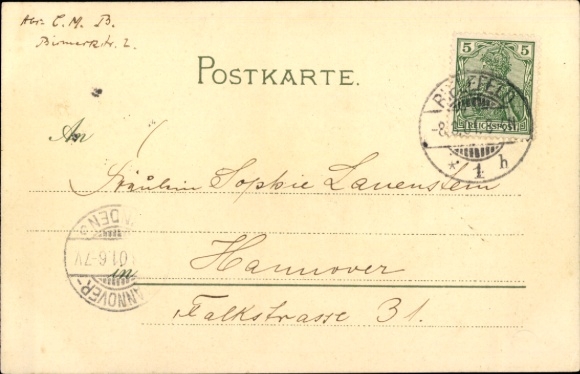 Abs. C. M. B.
Bismarckstr. 2.
POSTKARTE.
5 5
REICHSPOST
BIELEFELD
* 1 h
An
Fräulein Sophie Lauenstein
Hannover
in
Falkstrasse 31.
HANNOVER-LINDEN
.01.6-7V